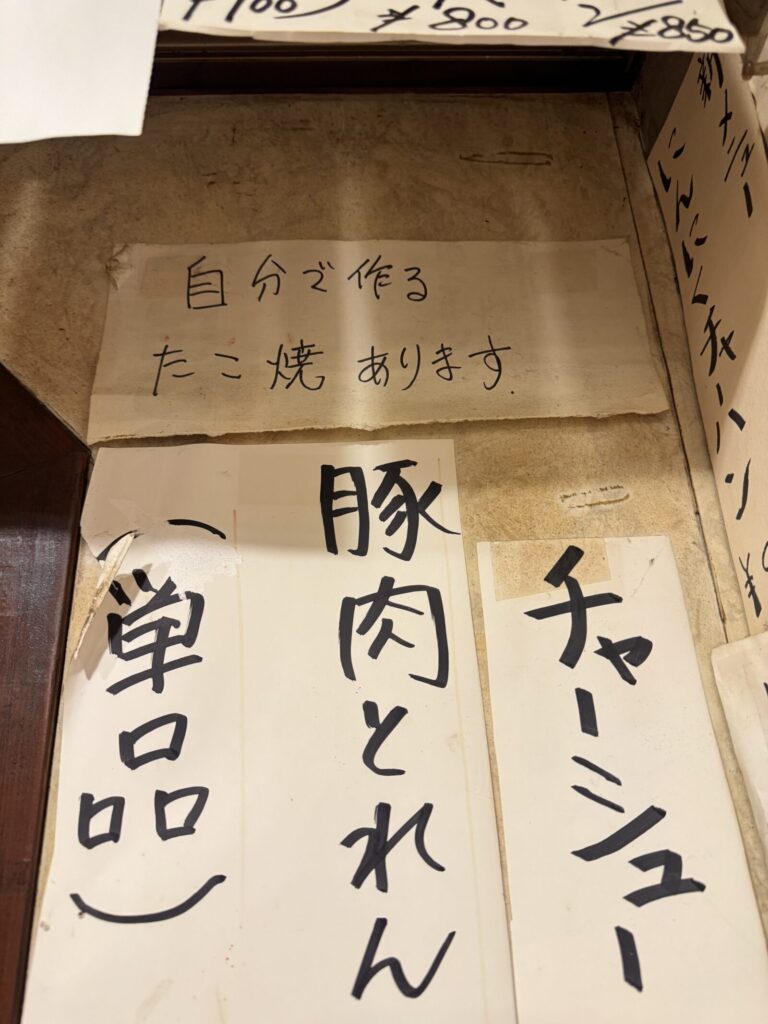 ¥800
¥850
自分で作る
たこ焼あります
新メニュー
にんにくチャーハン
チャーシュー
豚肉とれん
(単品)